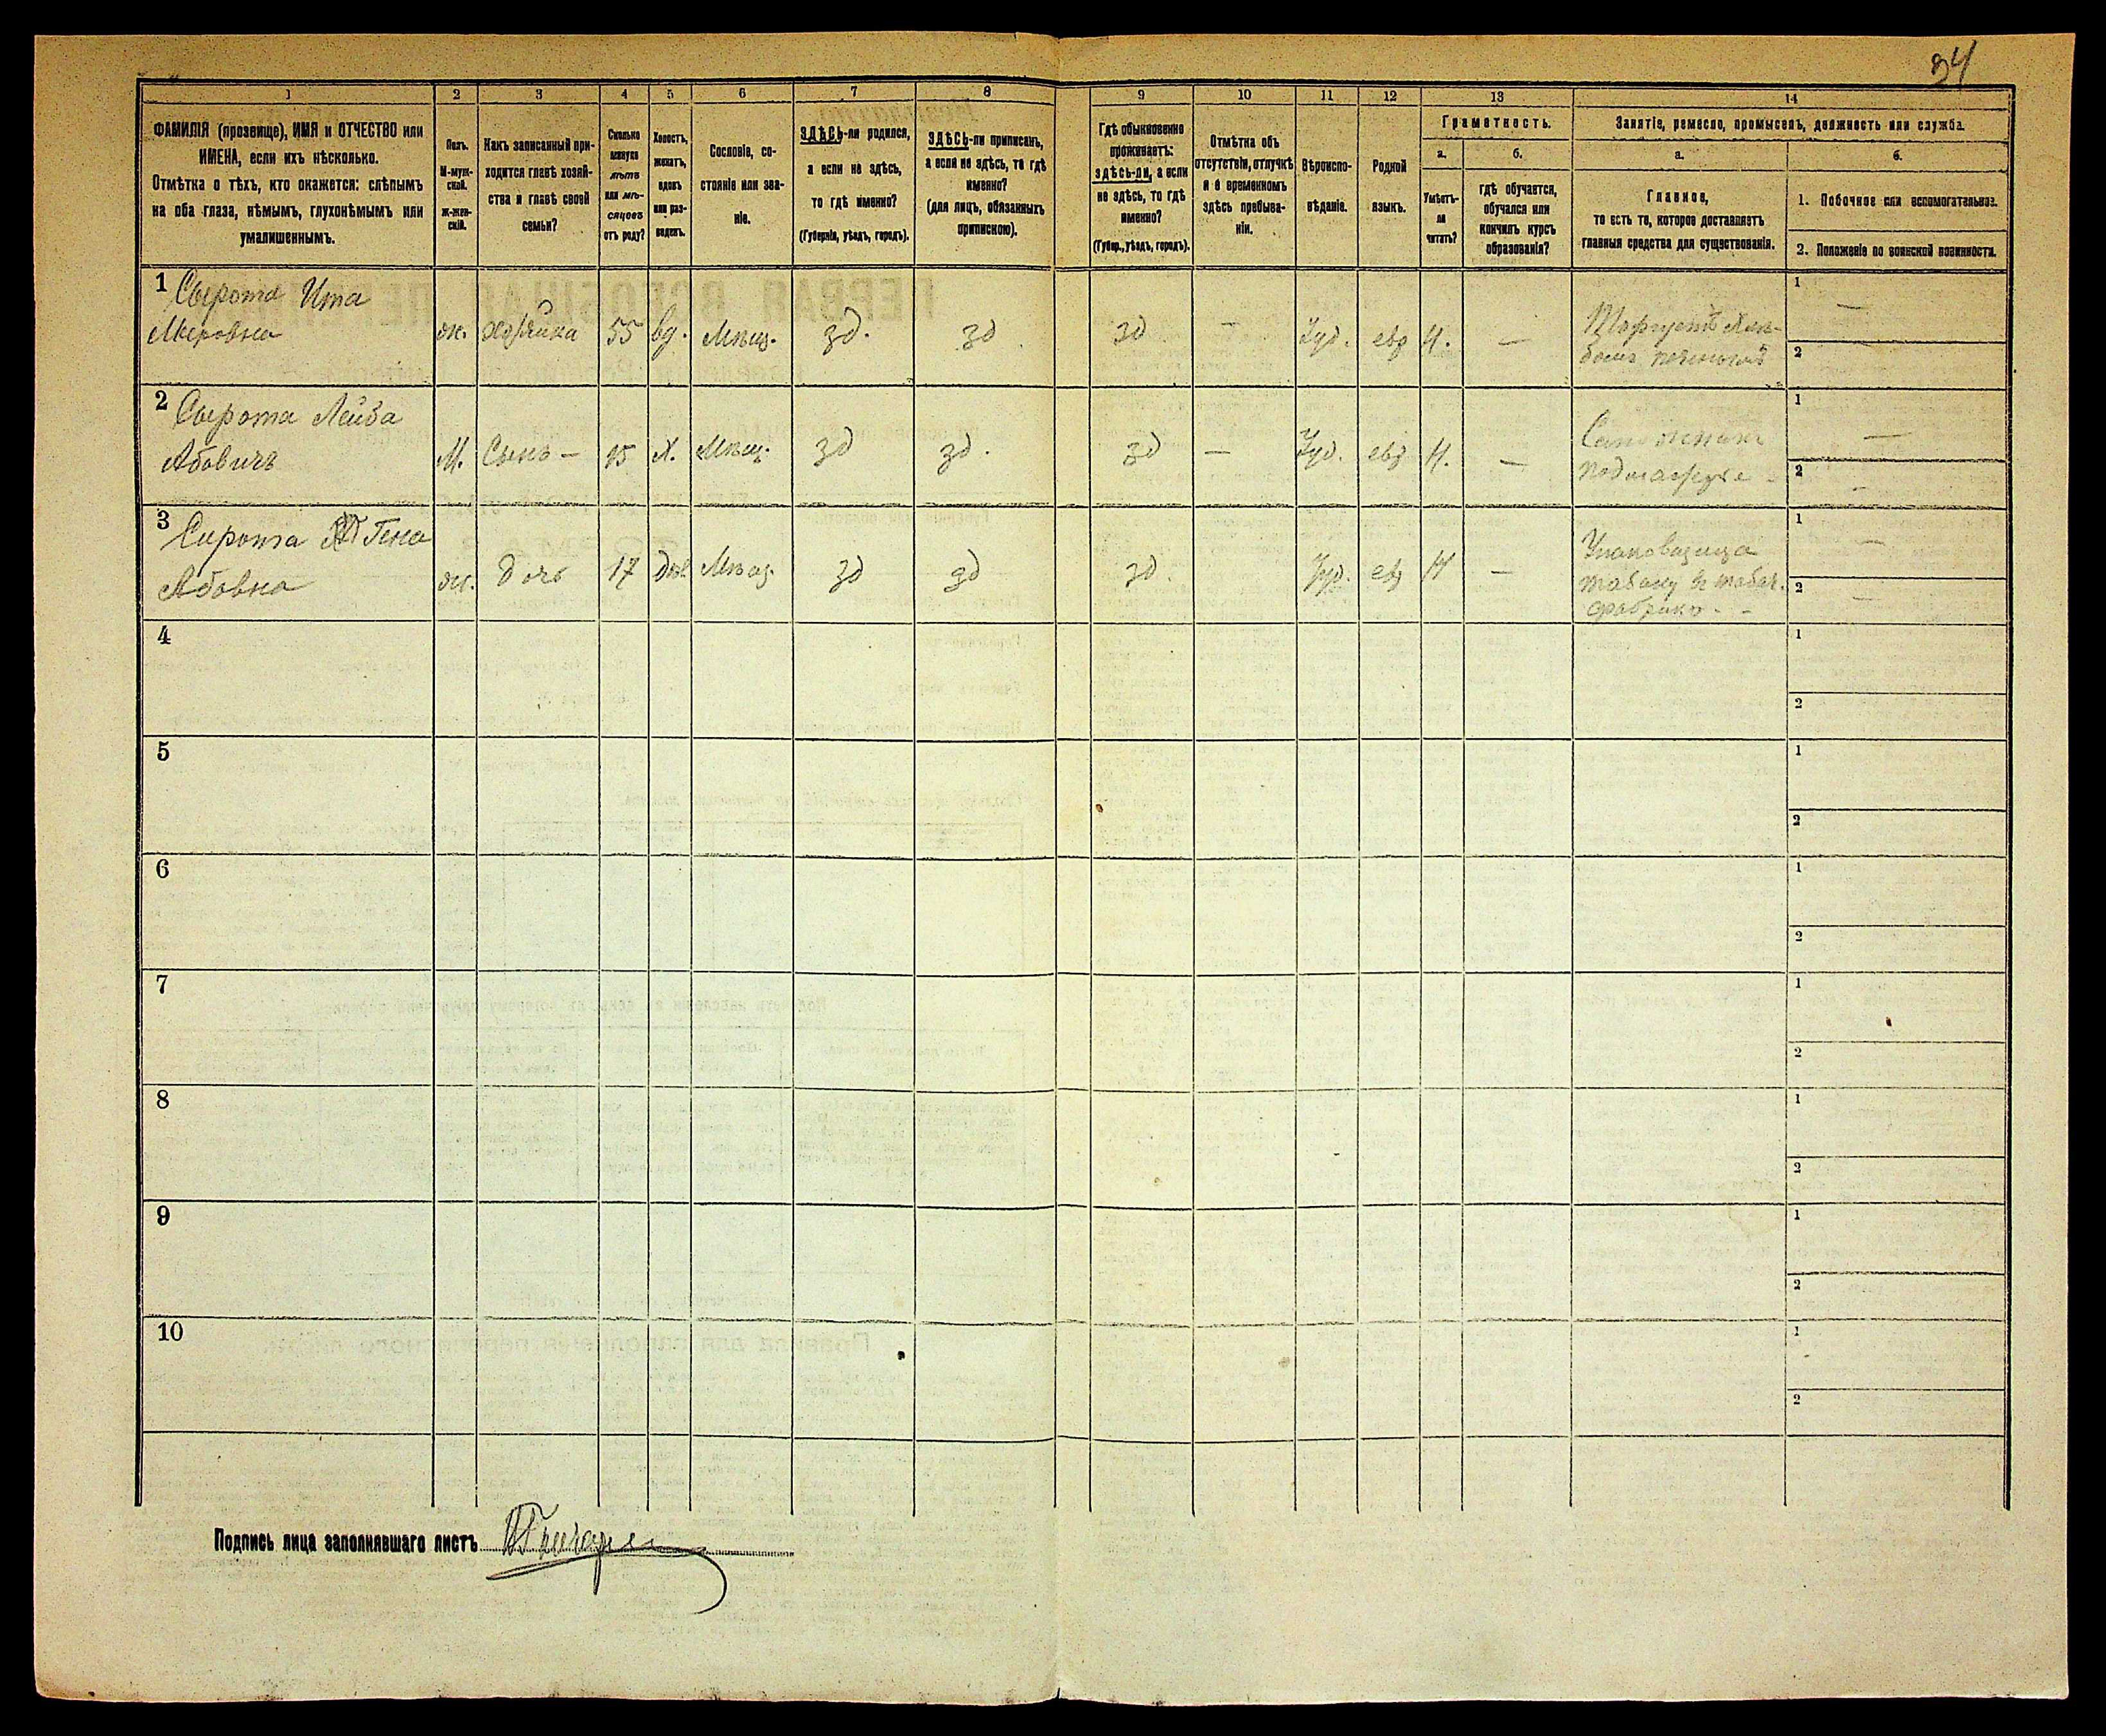 34
1 2 3 4 5 6 7 8 9 10 11 12 13 14
ФАМИЛІЯ (прозвище), ИМЯ и ОТЧЕСТВО или
ИМЕНА, если ихъ нѣсколько.
Отмѣтка о тѣхъ, кто окажется: слѣпымъ
на оба глаза, нѣмымъ, глухонѣмымъ или
умалишеннымъ.
Полъ.
М-муж-
ской.
ж-жен-
скій.
Какъ записанный при-
ходится главѣ хозяй-
ства и главѣ своей
семьи?
Сколько
минуло
лѣтъ
или мѣ-
сяцевъ
отъ роду?
Холостъ,
женатъ,
вдовъ
или раз-
веденъ.
Сословіе, со-
стояніе или зва-
ніе.
ЗДѢСЬ-ли родился,
а если не здѣсь,
то гдѣ именно?
(Губернія, уѣздъ, городъ).
ЗДѢСЬ-ли приписанъ,
а если не здѣсь, то гдѣ
именно?
(для лицъ, обязанныхъ
припискою).
Гдѣ обыкновенно
проживаетъ:
здѣсь-ли, а если
не здѣсь, то гдѣ
именно?
(Губер., уѣздъ, городъ).
Отмѣтка объ
отсутствіи, отлучкѣ
и о временномъ
здѣсь пребыва-
ніи.
Вѣроиспо-
вѣданіе.
Родной
языкъ.
Грамотность.
а.
Умѣетъ-
ли
читать?
б.
гдѣ обучается,
обучался или
кончилъ курсъ
образованія?
Занятіе, ремесло, промыселъ, должность или служба.
а.
Главное,
то есть то, которое доставляетъ
главныя средства для существованія.
б.
1. Побочное или вспомогательное.
2. Положеніе по воинской повинности.
1 Сырота Ита
Меровна ж. хозяйка 55 вд. Мѣщ. зд. зд зд — Іуд. евр Н. —
Торгуетъ хлѣ-
бомъ печенымъ
1 —
2
2 Сырота Лейба
Абовичъ М. Сынъ — 15 Х. Мѣщ. зд зд. зд — Іуд. евр Н. —
подмастерье
1 —
2 —
3 Сирота Гена
Абовна ж. дочь 17 дѣв Мѣщ. зд зд зд. Іуд. евр Н —
Упаковщица
табаку на табач.
фабрикѣ
1 —
2 —
4
1
2
5
1
2
6
1
2
7
1
2
8
1
2
9
1
2
10
1
2
Подпись лица заполнявшаго листъ